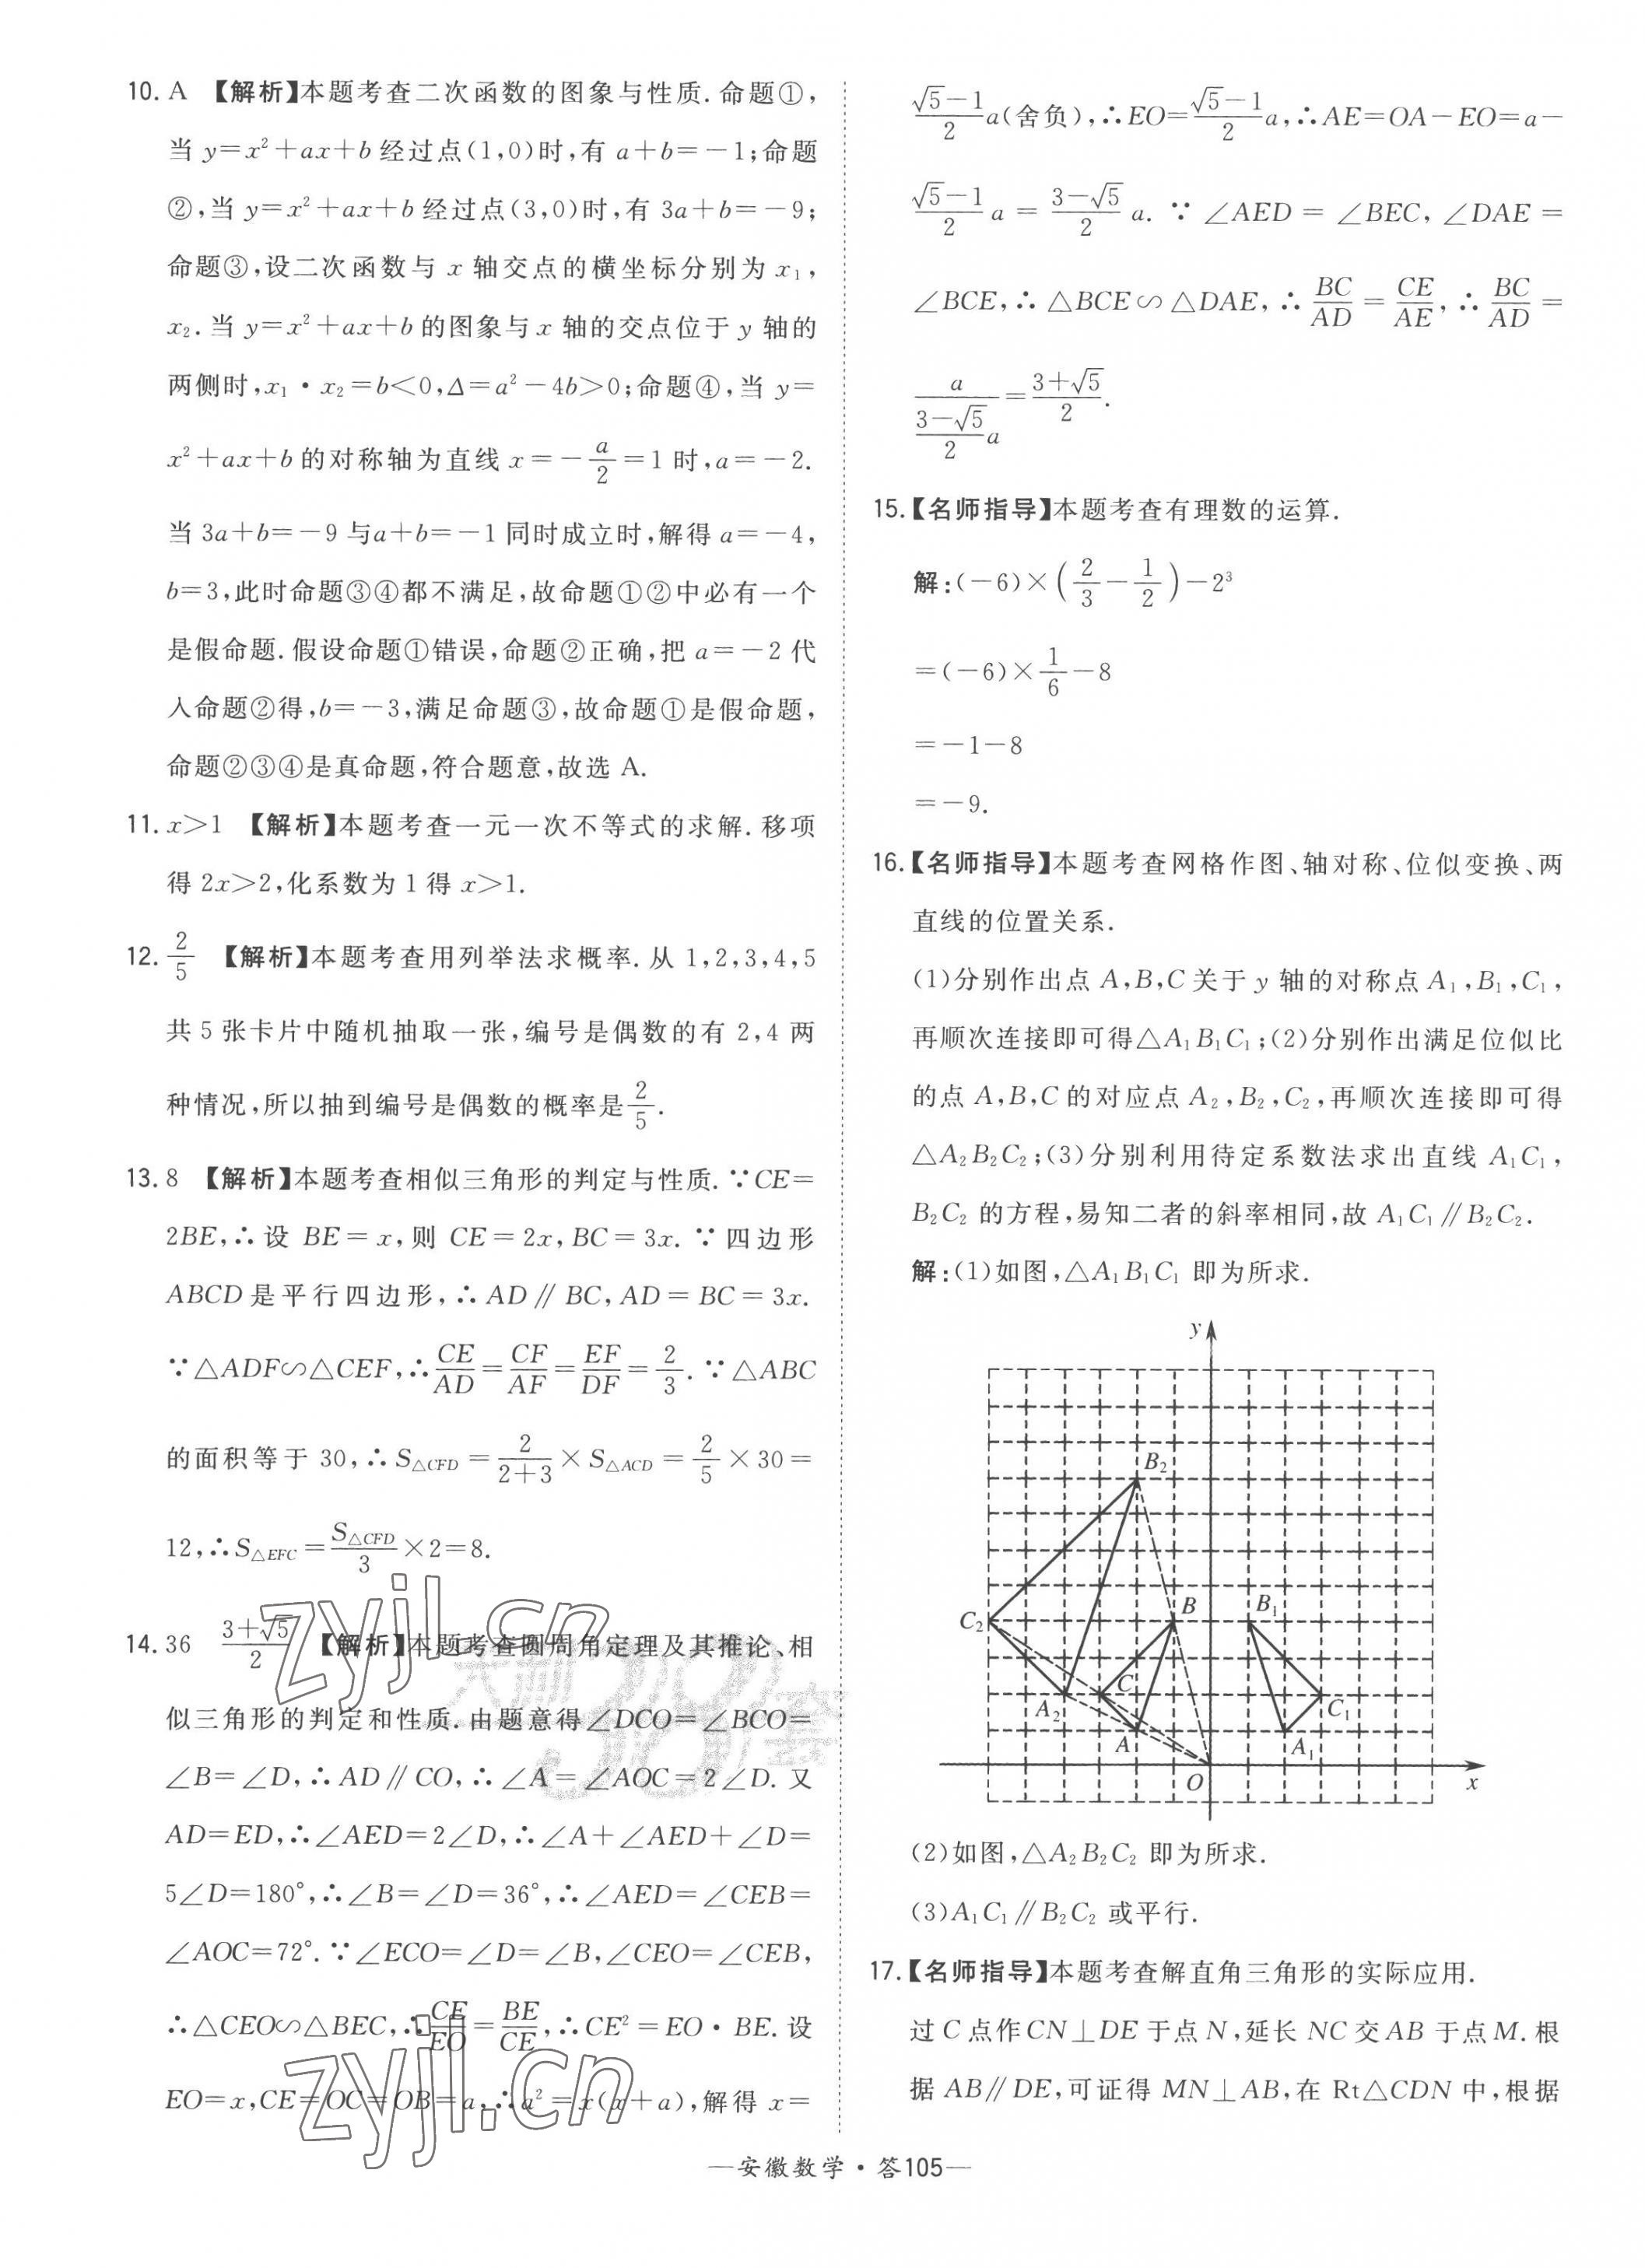 10. A 【解析】本题考查二次函数的图象与性质. 命题①,
当 y=x²+ax+b 经过点(1,0)时,有 a+b=-1;命题
②,当 y=x²+ax+b 经过点(3,0)时,有 3a+b=-9;
命题③,设二次函数与 x 轴交点的横坐标分别为 x₁,
x₂. 当 y=x²+ax+b 的图象与 x 轴的交点位于 y 轴的
两侧时,x₁·x₂=b<0,Δ=a²-4b>0;命题④,当 y=
x²+ax+b 的对称轴为直线 x=-a/2=1 时,a=-2.
当 3a+b=-9 与a+b=-1 同时成立时,解得 a=-4,
b=3,此时命题③④都不满足,故命题①②中必有一个
是假命题. 假设命题①错误,命题②正确,把 a=-2 代
入命题②得,b=-3,满足命题③,故命题①是假命题,
命题②③④是真命题,符合题意,故选 A.
11. x>1 【解析】本题考查一元一次不等式的求解. 移项
得 2x>2,化系数为 1 得 x>1.
12. 2/5 【解析】本题考查用列举法求概率. 从 1,2,3,4,5
共 5 张卡片中随机抽取一张,编号是偶数的有 2,4 两
种情况,所以抽到编号是偶数的概率是2/5.
13. 8 【解析】本题考查相似三角形的判定与性质. ∵CE=
2BE,∴设 BE=x,则 CE=2x,BC=3x. ∵四边形
ABCD 是平行四边形,∴AD∥BC,AD=BC=3x.
∵△ADF∽△CEF,∴CE/AD=CF/AF=EF/DF=2/3. ∵△ABC
的面积等于 30,∴S△CFD=2/(2+3)×S△ACD=2/5×30=
12,∴S△EFC=S△CFD/3×2=8.
14. 36 (3+√5)/2 【解析】本题考查圆周角定理及其推论、相
似三角形的判定和性质. 由题意得∠DCO=∠BCO=
∠B=∠D,∴AD∥CO,∴∠A=∠AOC=2∠D. 又
AD=ED,∴∠AED=2∠D,∴∠A+∠AED+∠D=
5∠D=180°,∴∠B=∠D=36°,∴∠AED=∠CEB=
∠AOC=72°. ∵∠ECO=∠D=∠B,∠CEO=∠CEB,
∴△CEO∽△BEC,∴CE/EO=BE/CE,∴CE²=EO·BE. 设
EO=x,CE=OC=OB=a,∴a²=x(x+a),解得 x=
(√5-1)/2 a(舍负),∴EO=(√5-1)/2 a,∴AE=OA-EO=a-
(√5-1)/2 a=(3-√5)/2 a. ∵∠AED=∠BEC,∠DAE=
∠BCE,∴△BCE∽△DAE,∴BC/AD=CE/AE,∴BC/AD=
a/((3-√5)/2 a)=(3+√5)/2.
15.【名师指导】本题考查有理数的运算.
解:(-6)×(2/3-1/2)-2³
=(-6)×1/6-8
=-1-8
=-9.
16.【名师指导】本题考查网格作图、轴对称、位似变换、两
直线的位置关系.
(1)分别作出点 A,B,C 关于 y 轴的对称点 A₁,B₁,C₁,
再顺次连接即可得△A₁B₁C₁;(2)分别作出满足位似比
的点 A,B,C 的对应点 A₂,B₂,C₂,再顺次连接即可得
△A₂B₂C₂;(3)分别利用待定系数法求出直线 A₁C₁,
B₂C₂ 的方程,易知二者的斜率相同,故 A₁C₁∥B₂C₂.
解:(1)如图,△A₁B₁C₁ 即为所求.
y
B₂
C₂
B
B₁
A₂
C
C₁
A
A₁
O
x
(2)如图,△A₂B₂C₂ 即为所求.
(3)A₁C₁∥B₂C₂ 或平行.
17.【名师指导】本题考查解直角三角形的实际应用.
过 C 点作 CN⊥DE 于点 N,延长 NC 交 AB 于点 M. 根
据 AB∥DE,可证得 MN⊥AB,在 Rt△CDN 中,根据
—安徽数学·答105—
zyjl.cn
天利38套
zyjl.cn